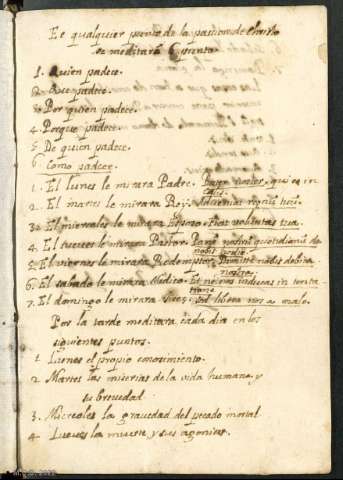 En qualquier punto de la passion de Christo
se meditará 6 puntos
1. Quien padece.
2. Que padece.
3. Por quien padece.
4. Porque padece.
5. De quien padece.
6. Como padece.
1. El lunes le mirara Padre. Pater noster, qui es in
2. El martes le mirara Rey. Adveniat regnũ tuũ.
3. El miercoles le mirara Esposo. Fiat voluntas tua.
4. El jueves le mirara Pastor. Panẽ nostrũ quotidianũ da
nobis hodie
5. El viernes le mirara Redemptor. Dimitte nobis debita
nostra.
6. El sabado le mirara Medico. Et ne nos inducas in tenta
tionẽ
7. El domingo le mirara Juez. Sed libera nos a malo.
Por la tarde meditara cada dia en los
siguientes puntos.
1. Lunes el propio conocimiento.
2. Martes las miserias de la vida humana, y
su brevedad.
3. Miercoles la gravedad del pecado mortal
4. Jueves la muerte, y sus agonias.